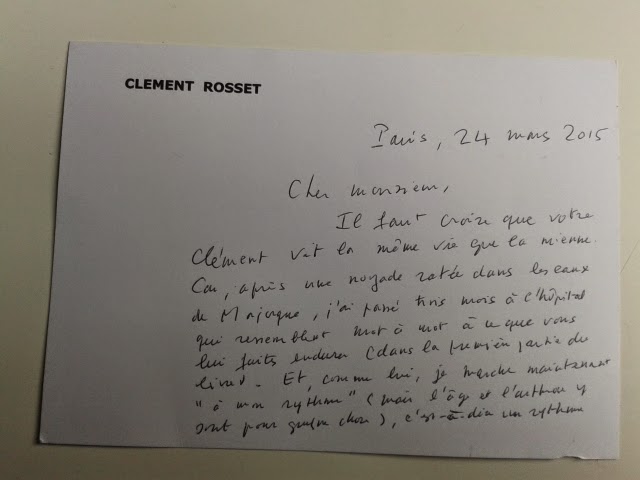 CLEMENT ROSSET
Paris, 24 mars 2015
Cher monsieur,
Il faut croire que votre
Clément vit la même vie que la mienne.
Car, après une noyade ratée dans les eaux
de Majorque, j'ai passé trois mois à l'hôpital
qui ressemblent mot à mot à ce que vous
lui faites endurer (dans la première partie du
livre). Et, comme lui, je marche maintenant
"à mon rythme" (mais l'âge et l'arthrose y
sont pour quelque chose), c'est-à-dire un rythme